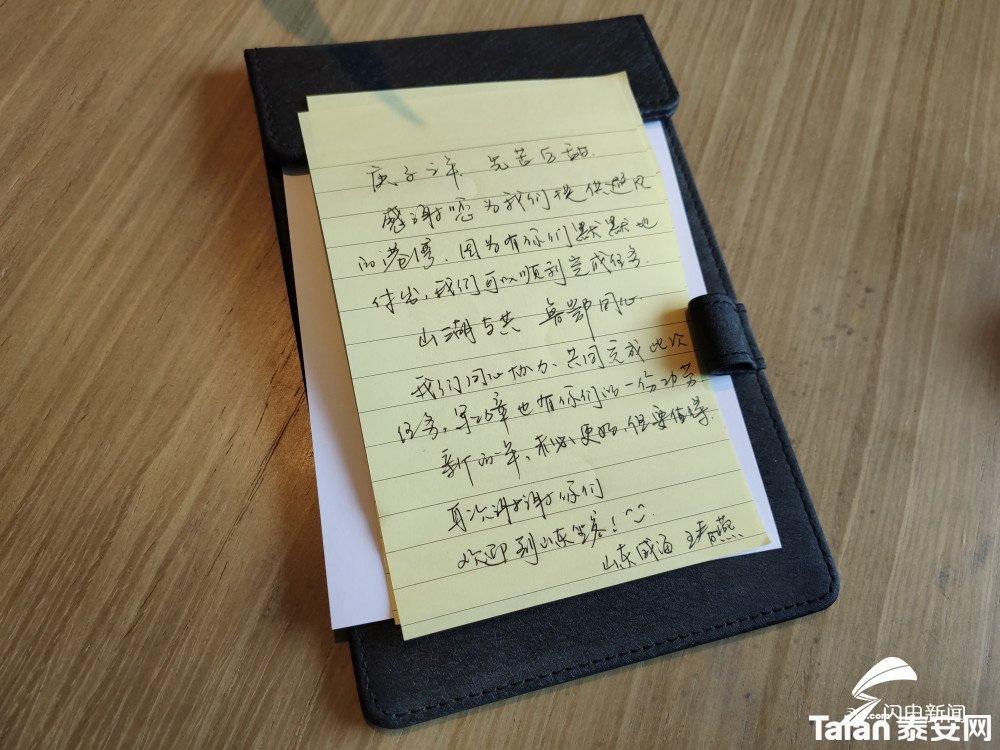 庚子之年 先苦后甜.
感谢您为我们提供避风
的港湾，因为有你们默默地
付出，我们可以顺利完成任务.
山湖与共 鲁鄂同心.
我们同心协力、共同完成此次
任务，军功章也有你们的一份功劳
新的一年，未必更好，但要值得.
再次谢谢你们
欢迎到山东做客！
山东威海 王春燕
闪电新闻
Taian 泰安网
.com